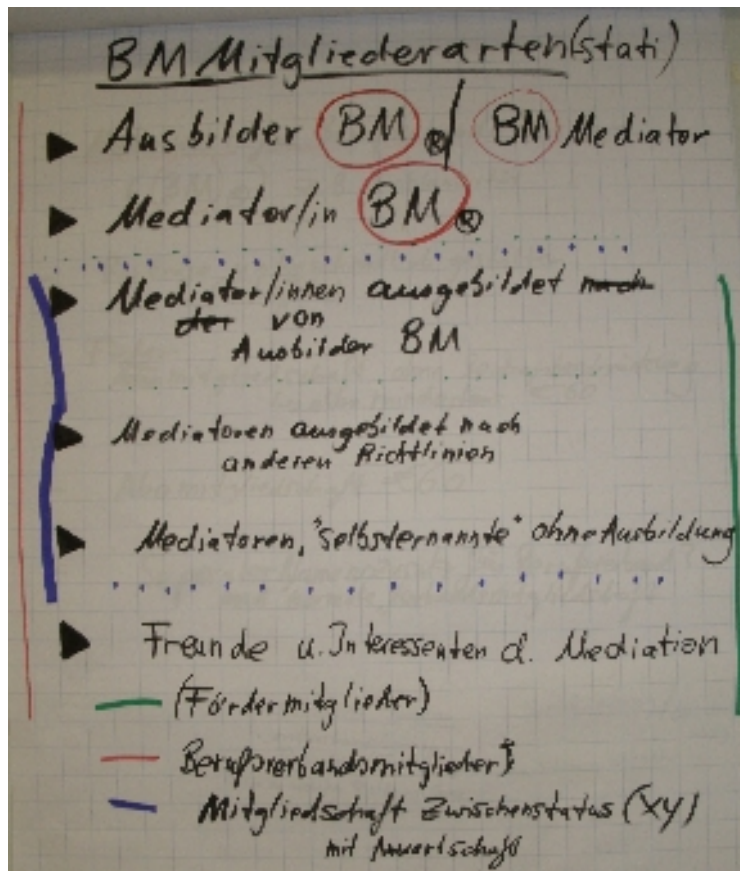 BM Mitgliederarten (stati)
Ausbilder BM ® / BM Mediator
Mediator/in BM ®
Mediator/innen ausgebildet nach
der von
Ausbilder BM
Mediatoren ausgebildet nach
anderen Richtlinien
Mediatoren, "selbsternannte" ohne Ausbildung
Freunde u. Interessenten d. Mediation
(Fördermitglieder)
Berufsverbandsmitglieder
Mitgliedschaft Zwischenstatus (XY)
mit Anwartschaft